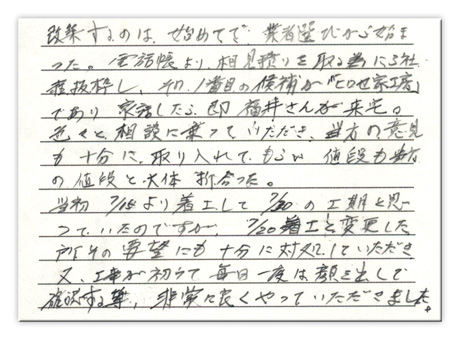 改築するのは、始めてで 業者選びから始ま
った。電話帳より、相見積りを取る為に3社
程抜粋し、その1番目の候補が「ヒロセ家工房」
であり 電話したら、即 福井さんが来宅。
色々と相談に乗っていただき、当方の意見
も十分に取り入れてもらい 値段も当方
の値段と大体 折合った。
当初 7/15より着工して 7/30の工期と思っ
ていたのですが、7/20着工と変更した
所その要望にも十分に対処していただき
又、工事が初って毎日一度は顔を出して
確認する等、非常に良くやっていただきました。